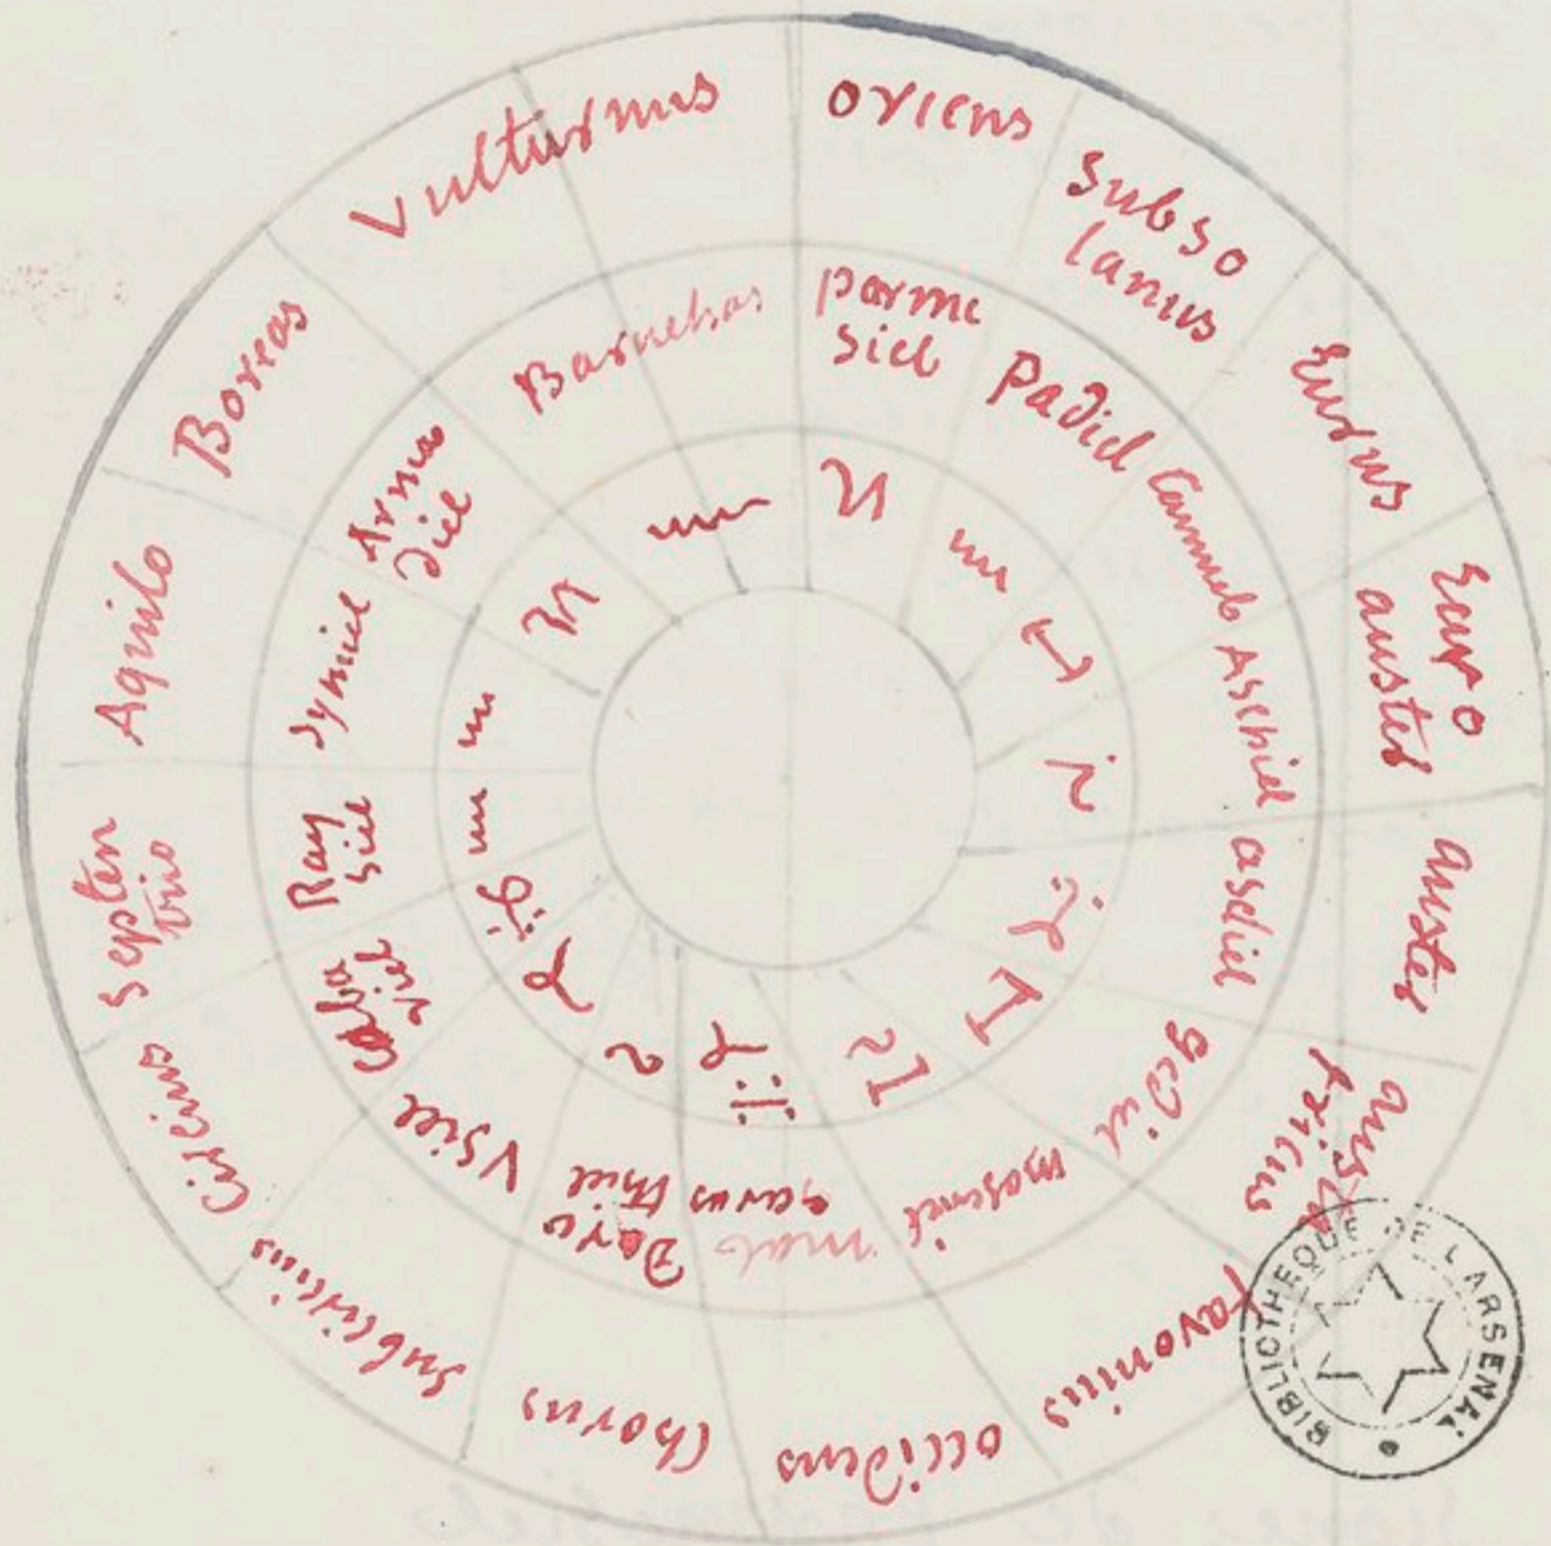 oriens
Subso
lanus
Eurus
Euro
auster
auster
auster
fricus
favonius
occidens
Chorus
Subcircius
Circius
Septen
trio
Aquilo
Boreas
Vulturnus
parme
siel
padiel
Camuel
Aschiel
asdiel
gediel
maseriel
mal
garus
thiel
Dario
Vsiel
Caba
riel
Ray
siel
Symiel
Arma
diel
BIBLIOTHEQUE DE L'ARSENAL